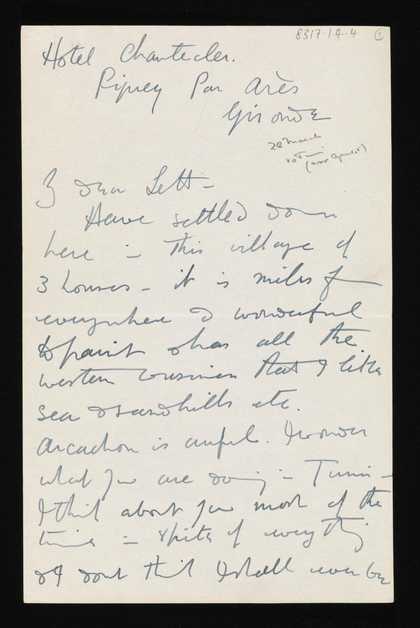 8317.1.4.4 1
Hotel Chantecler.
Piquey Par Arès
Gironde
22 March
My dear Lett –
Have settled down
here in this village of
3 houses – it is miles from
everywhere & wonderful
to paint & has all the
western that I like
sea & sandhills etc.
Arcachon is awful. I wonder
what you are doing in Tunis –
I think about you most of the
time in spite of everything
& I dont think I shall ever be